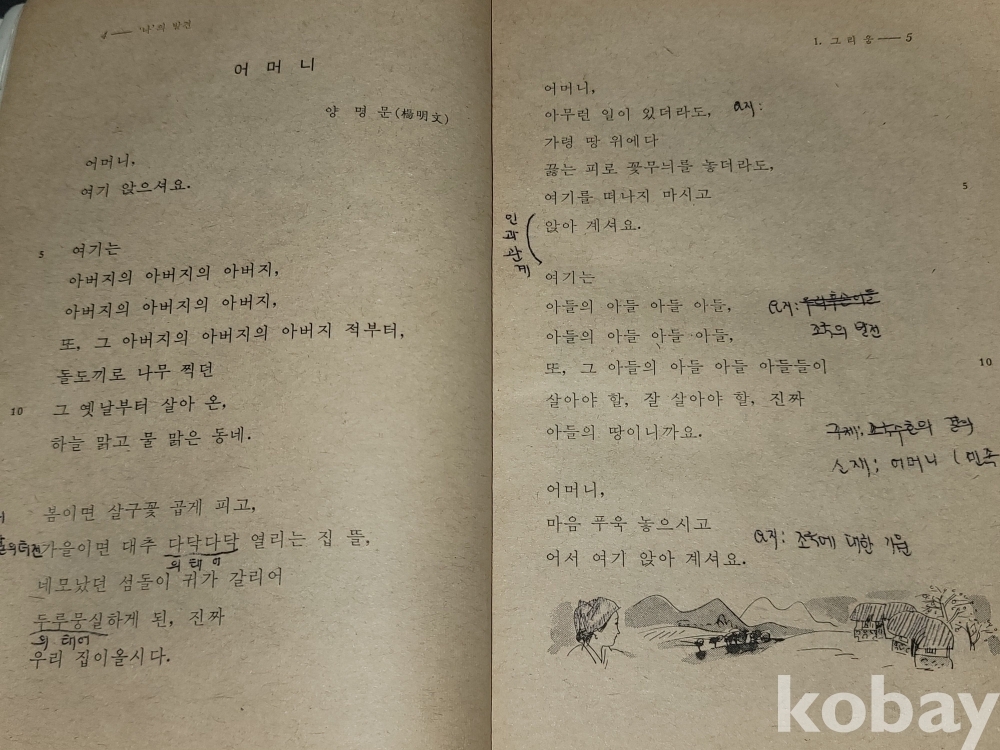 4 — '나'의 발견
어 머 니
양 명 문(楊明文)
어머니,
여기 앉으셔요.
5 여기는
아버지의 아버지의 아버지,
아버지의 아버지의 아버지,
또, 그 아버지의 아버지의 아버지 적부터,
돌도끼로 나무 찍던
10 그 옛날부터 살아 온,
하늘 맑고 물 맑은 동네.
봄이면 살구꽃 곱게 피고,
가을이면 대추 다닥다닥 열리는 집 뜰,
의태어
네모났던 섬돌이 귀가 갈리어
두루뭉실하게 된, 진짜
의태어
우리 집이올시다.
1. 그리움 — 5
어머니,
아무런 일이 있더라도, 요지:
가령 땅 위에다
끓는 피로 꽃무늬를 놓더라도,
여기를 떠나지 마시고 5
앉아 계셔요.
인과관계
여기는
아들의 아들 아들 아들, 요지:
아들의 아들 아들 아들, 조국의 발전
또, 그 아들의 아들 아들 아들들이 10
살아야 할, 잘 살아야 할, 진짜
아들의 땅이니까요.
주제: 조국수호의 결의
소재: 어머니 (민족
어머니,
마음 푸욱 놓으시고
요지: 조국에 대한 기원
어서 여기 앉아 계셔요.
kobay